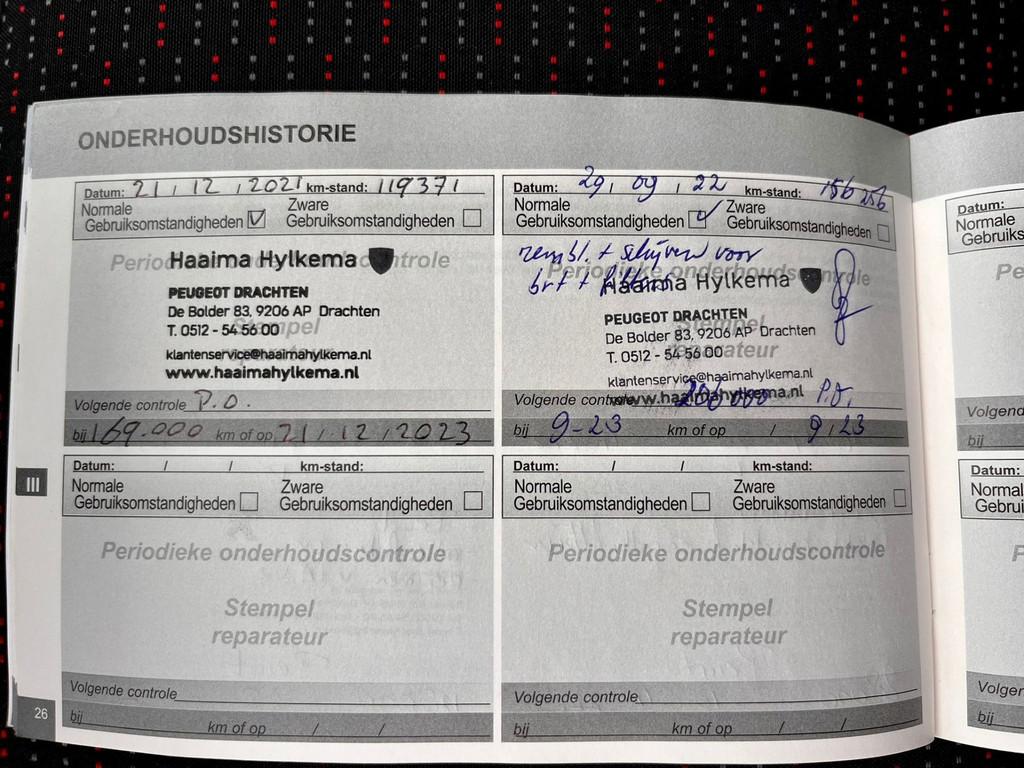 ONDERHOUDSHISTORIE
Datum: 21 / 12 / 2021 km-stand: 119371
Normale Gebruiksomstandigheden Zware Gebruiksomstandigheden
Periodieke onderhoudscontrole
Haaima Hylkema
PEUGEOT DRACHTEN
De Bolder 83, 9206 AP Drachten
T. 0512 - 54 56 00
Stempel
reparateur
klantenservice@haaimahylkema.nl
www.haaimahylkema.nl
Volgende controle P.O.
bij 169.000 km of op 21 / 12 / 2023
Datum: 29 / 09 / 22 km-stand: 156 256
Normale Gebruiksomstandigheden Zware Gebruiksomstandigheden
rembl. + schijven voor
Periodieke onderhoudscontrole
Haaima Hylkema
PEUGEOT DRACHTEN
De Bolder 83, 9206 AP Drachten
T. 0512 - 54 56 00
Stempel
reparateur
klantenservice@haaimahylkema.nl
www.haaimahylkema.nl
Volgende controle 206 000 P.O.
bij 9-23 km of op / 9 / 23
Datum: / / km-stand:
Normale Gebruiksomstandigheden Zware Gebruiksomstandigheden
Periodieke onderhoudscontrole
Stempel
reparateur
Volgende controle
bij km of op / /
Datum: / / km-stand:
Normale Gebruiksomstandigheden Zware Gebruiksomstandigheden
Periodieke onderhoudscontrole
Stempel
reparateur
Volgende controle
bij km of op / /
III
26
Datum:
Normale
bij
Datum:
bij